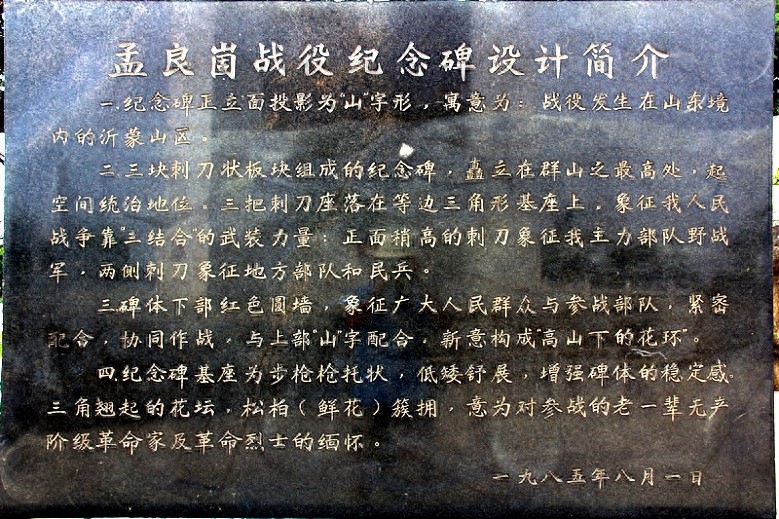 孟良崮战役纪念碑设计简介
一.纪念碑正立面投影为"山"字形，寓意为：战役发生在山东境
内的沂蒙山区。
二.三块刺刀状板块组成的纪念碑，矗立在群山之最高处，起
空间统治地位。三把刺刀座落在等边三角形基座上。象征我人民
战争靠"三结合"的武装力量：正面稍高的刺刀象征我主力部队野战
军，两侧刺刀象征地方部队和民兵。
三.碑体下部红色圆墙，象征广大人民群众与参战部队，紧密
配合，协同作战，与上部"山"字配合，新意构成"高山下的花环"。
四.纪念碑基座为步枪枪托状，低矮舒展，增强碑体的稳定感。
三角翘起的花坛，松柏（鲜花）簇拥，意为对参战的老一辈无产
阶级革命家及革命烈士的缅怀。
一九八五年八月一日